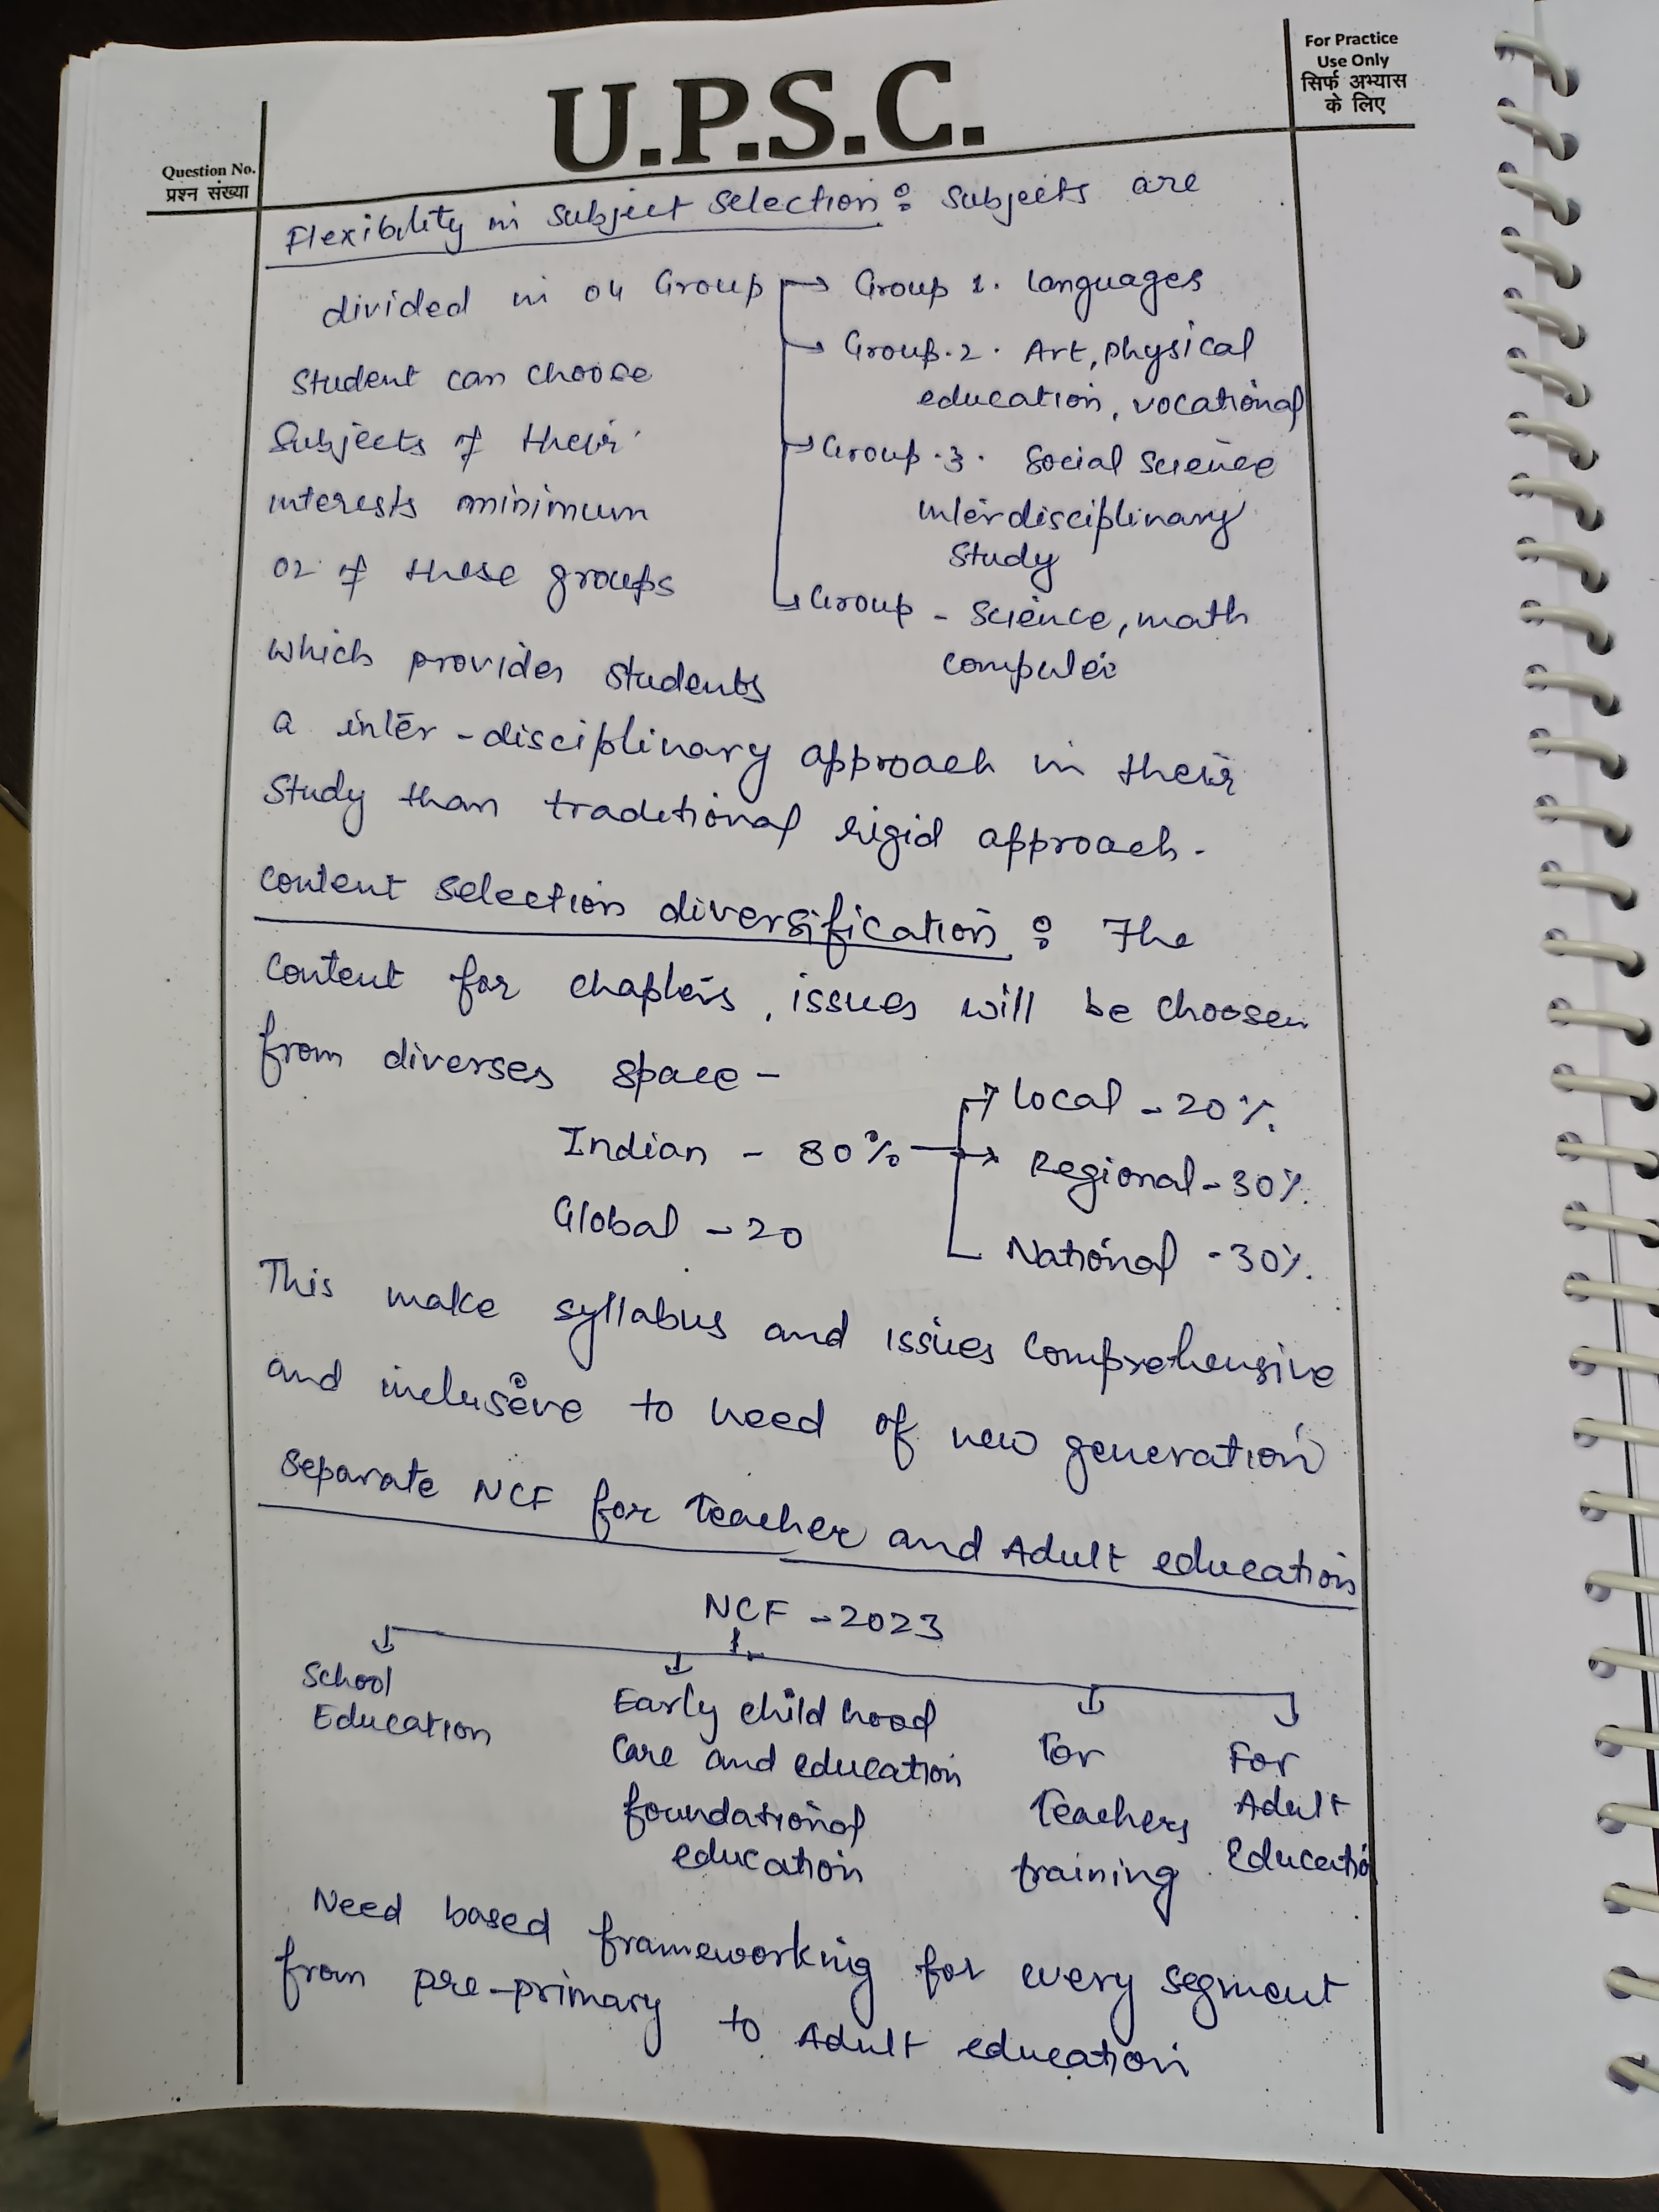 For Practice
Use Only
सिर्फ अभ्यास
के लिए
U.P.S.C.
Question No.
प्रश्न संख्या
Flexibility in subject selection : Subjects are
divided in 04 Group → Group 1. languages
→ Group.2. Art, physical
education, vocational
Student can choose
Subjects of their
→ Group.3. Social Science
interdisciplinary
Study
interests minimum
02 of these groups
→ Group - Science, math
computer
which provides students
a inter-disciplinary approach in their
Study than traditional rigid approach.
Content selection diversification : The
content for chapters, issues will be choosen
from diverses space -
Indian - 80% → Local - 20%.
→ Regional - 30%.
National - 30%.
Global - 20
This make syllabus and issues comprehensive
and inclusive to need of new generation
Separate NCF for Teacher and Adult education
NCF - 2023
School
Education
Early child hood
Care and education
foundational
education
For
Teachers
training
For
Adult
Educatio
Need based frameworking for every segment
from pre-primary to Adult education